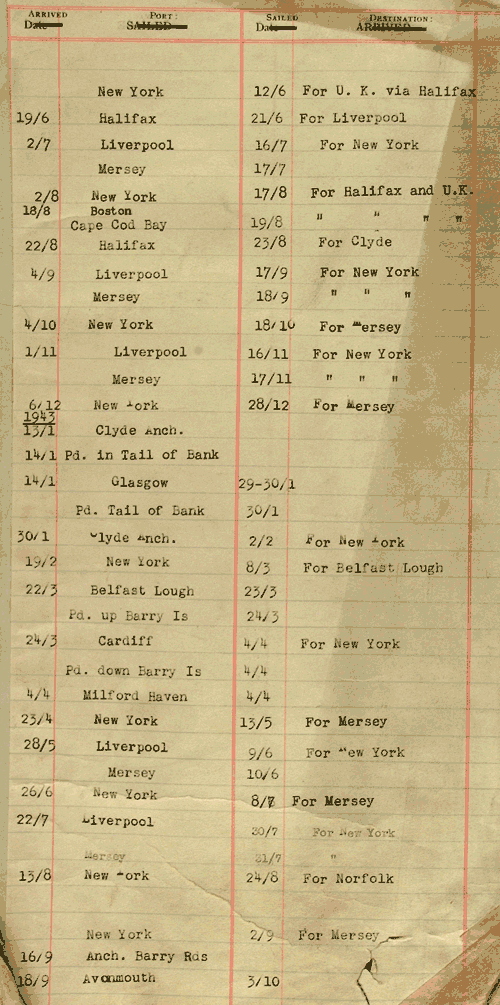 ARRIVED PORT: SAILED DESTINATION:
Date SAILED Date ARRIVED
New York 12/6 For U. K. via Halifax
19/6 Halifax 21/6 For Liverpool
2/7 Liverpool 16/7 For New York
Mersey 17/7
2/8 New York 17/8 For Halifax and U.K.
18/8 Boston
Cape Cod Bay 19/8 " " " "
22/8 Halifax 23/8 For Clyde
4/9 Liverpool 17/9 For New York
Mersey 18/9 " " "
4/10 New York 18/10 For Mersey
1/11 Liverpool 16/11 For New York
Mersey 17/11 " " "
6/12 New York 28/12 For Mersey
1943
13/1 Clyde Anch.
14/1 Pd. in Tail of Bank
14/1 Glasgow 29-30/1
Pd. Tail of Bank 30/1
30/1 Clyde Anch. 2/2 For New York
19/2 New York 8/3 For Belfast Lough
22/3 Belfast Lough 23/3
Pd. up Barry Is 24/3
24/3 Cardiff 4/4 For New York
Pd. down Barry Is 4/4
4/4 Milford Haven 4/4
23/4 New York 13/5 For Mersey
28/5 Liverpool 9/6 For New York
Mersey 10/6
26/6 New York 8/7 For Mersey
22/7 Liverpool 30/7 For New York
Mersey 31/7 "
13/8 New York 24/8 For Norfolk
New York 2/9 For Mersey
16/9 Anch. Barry Rds
18/9 Avonmouth 3/10